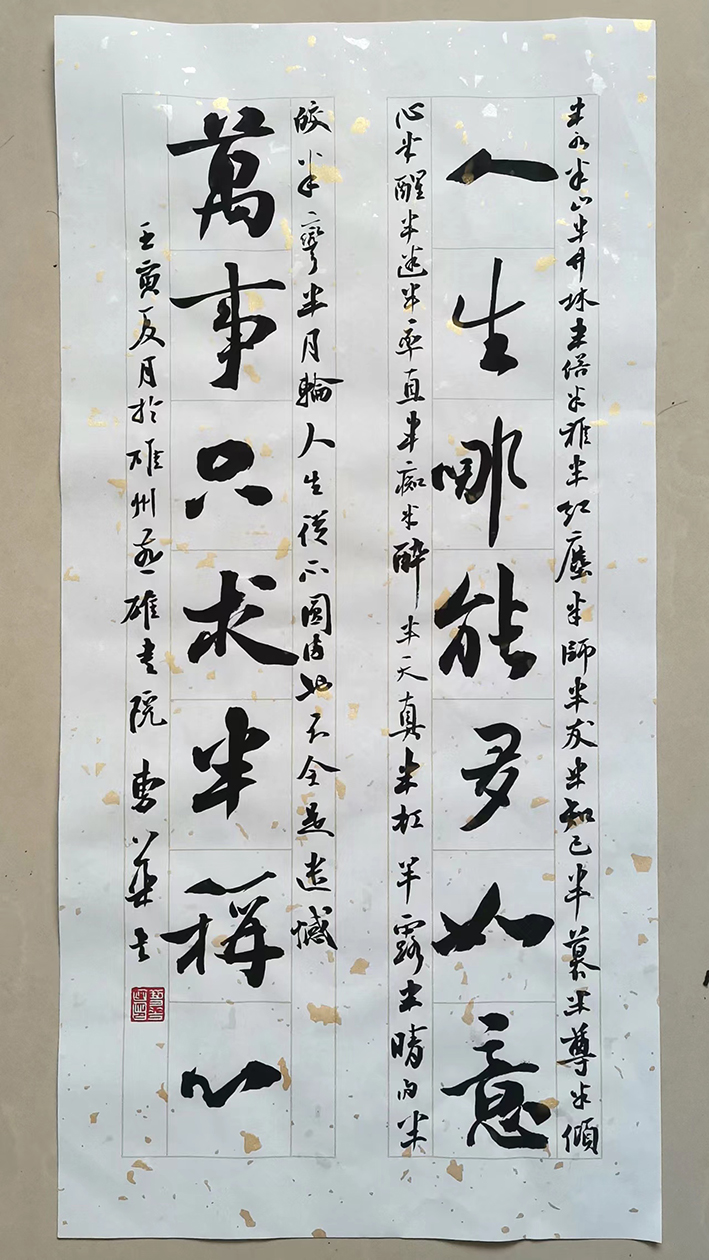 半水半山半竹林半俗半雅半红塵半師半友半知己半慕半尊半傾
人生哪能多如意
心半醒半迷半率直半痴半醉半天真半虹半露半晴雨半
皎半彎半月輪人生從不圓滿也不全是遺憾
萬事只求半稱心
壬寅夏月於雄州雄書院曹華書